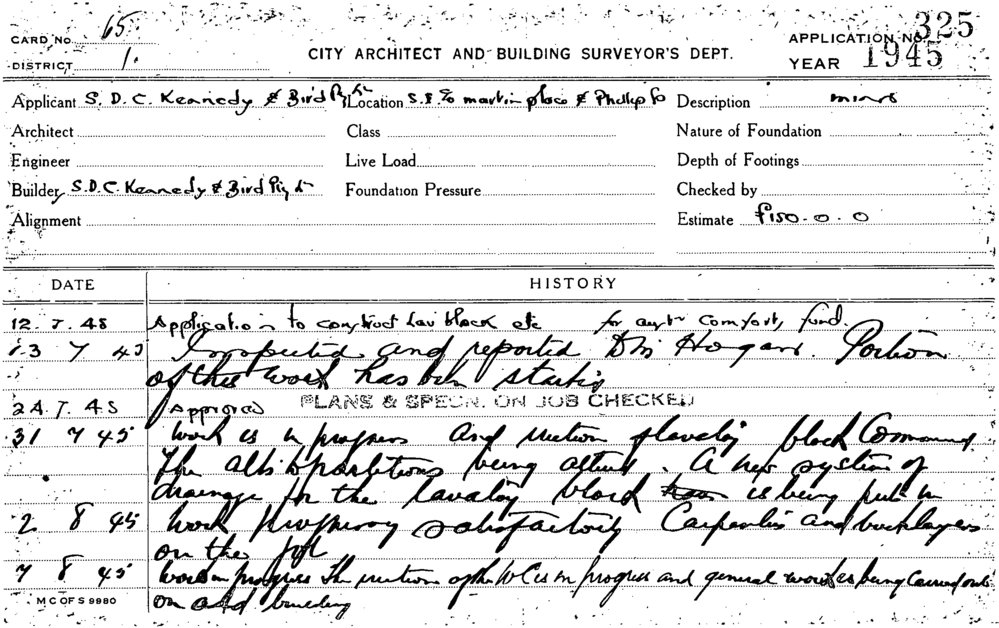 CARD No. 65.
DISTRICT 1.
CITY ARCHITECT AND BUILDING SURVEYOR'S DEPT.
APPLICATION No. 325
YEAR 1945
Applicant S. D. C. Kennedy & Bird Pty Location S.E. Martin place & Phillip Description minor
Architect Class Nature of Foundation
Engineer Live Load Depth of Footings
Builder S. D. C. Kennedy & Bird Pty Foundation Pressure Checked by
Alignment Estimate £150-0-0
DATE HISTORY
12. 7. 45 Application to construct Lav block etc for comforts fund.
23 7 45 Inspected and reported Hogan. Portion
of the work has been
24. 7. 45 Approved PLANS & SPECN. ON JOB CHECKED
31 7 45 Work is in progress and erection of lavatory block
The partitions being altered. A new system of
drainage for the lavatory block is being put in
2 8 45 Work progressing satisfactorily Carpenters and bricklayers
on the job
7 8 45 Work in progress The erection of the W.C. is in progress and general work is being carried out
on building
M C OF S 9980